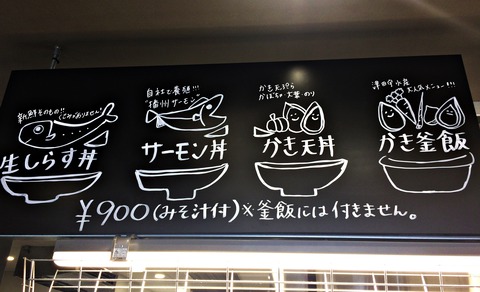 新鮮そのもの!!
生しらす丼
自社で養殖!!!
"播州サーモン"
サーモン丼
かき天ぷら
かぼちゃ・大葉・のり
かき天丼
津田宇水産
大人気メニュー!!!
かき釜飯
¥900(みそ汁付)※釜飯には付きません。